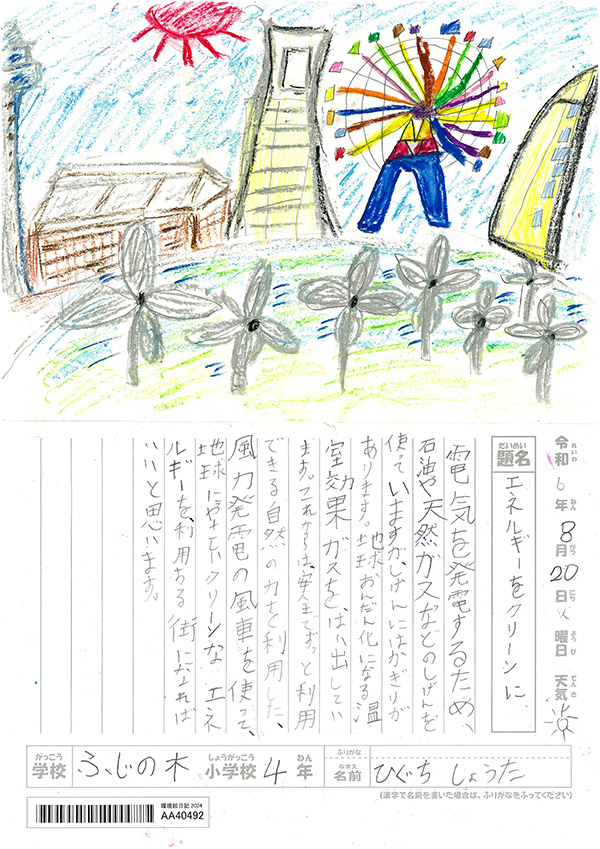 れいわ ねん がつ にち ようび てんき
令和6年8月20日火曜日 天気
だいめい
題名 エネルギーをクリーンに
電気を発電するため、
石油や天然ガスなどのしげんを
使ていますが、しげんにはかぎりが
あります。地球おんだん化になる温
室効果ガスを、はい出してい
ます。これからは、安全でずっと利用
できる自然の力を利用した、
風力発電の風車を使って、
地球にやさしいクリーンなエネ
ルギーを、利用する街になれば
いいと思います。
がっこう しょうがっこう ねん ふりがな なまえ
学校 ふじの木 小学校 4年 名前 ひぐち しょうた
(漢字で名前を書いた場合は、ふりがなをふってください)
環境絵日記 2024
AA40492